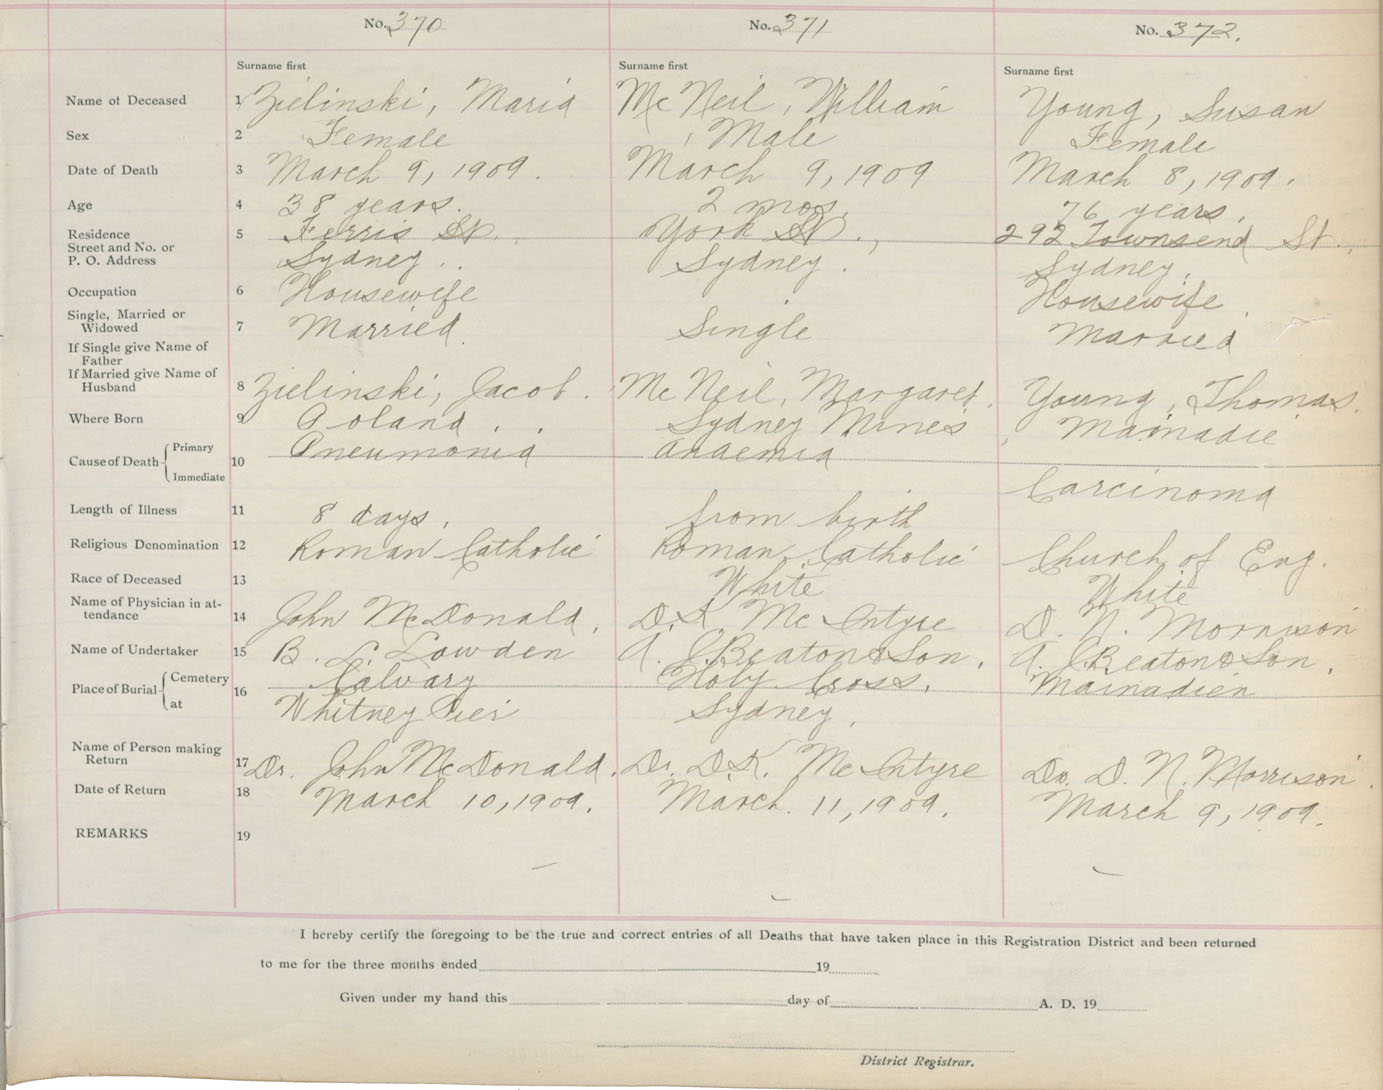 No. 370 No. 371 No. 372.
Surname first Surname first Surname first
Name of Deceased 1 Zielinski, Maria McNeil, William Young, Susan
Sex 2 Female Male Female
Date of Death 3 March 9, 1909. March 9, 1909 March 8, 1909.
Age 4 38 years. 2 mos. 76 years.
Residence 5 Ferris St., York St., 292 Townsend St.,
Street and No. or
P. O. Address Sydney. Sydney. Sydney.
Occupation 6 Housewife Housewife.
Single, Married or
Widowed 7 Married. Single Married
If Single give Name of
Father
If Married give Name of
Husband 8 Zielinski, Jacob. McNeil, Margaret. Young, Thomas.
Where Born 9 Poland. Sydney Mines Mainadie
Cause of Death { Primary 10 Pneumonia Anaemia
Immediate Carcinoma
Length of Illness 11 8 days. from birth
Religious Denomination 12 Roman Catholic Roman Catholic Church of Eng.
Race of Deceased 13 White White
Name of Physician in at-
tendance 14 John McDonald. D. K. McIntyre D. N. Morrison
Name of Undertaker 15 B. L. Lowden A. J. Beaton & Son. A. J. Beaton & Son.
Place of Burial { Cemetery 16 Calvary Holy Cross. Mainadien
at Whitney Pier Sydney.
Name of Person making
Return 17 Dr. John McDonald. Dr. D. K. McIntyre Dr. D. N. Morrison.
Date of Return 18 March 10, 1909. March. 11, 1909. March 9, 1909.
REMARKS 19
I hereby certify the foregoing to be the true and correct entries of all Deaths that have taken place in this Registration District and been returned
to me for the three months ended 19
Given under my hand this day of A. D. 19
District Registrar.